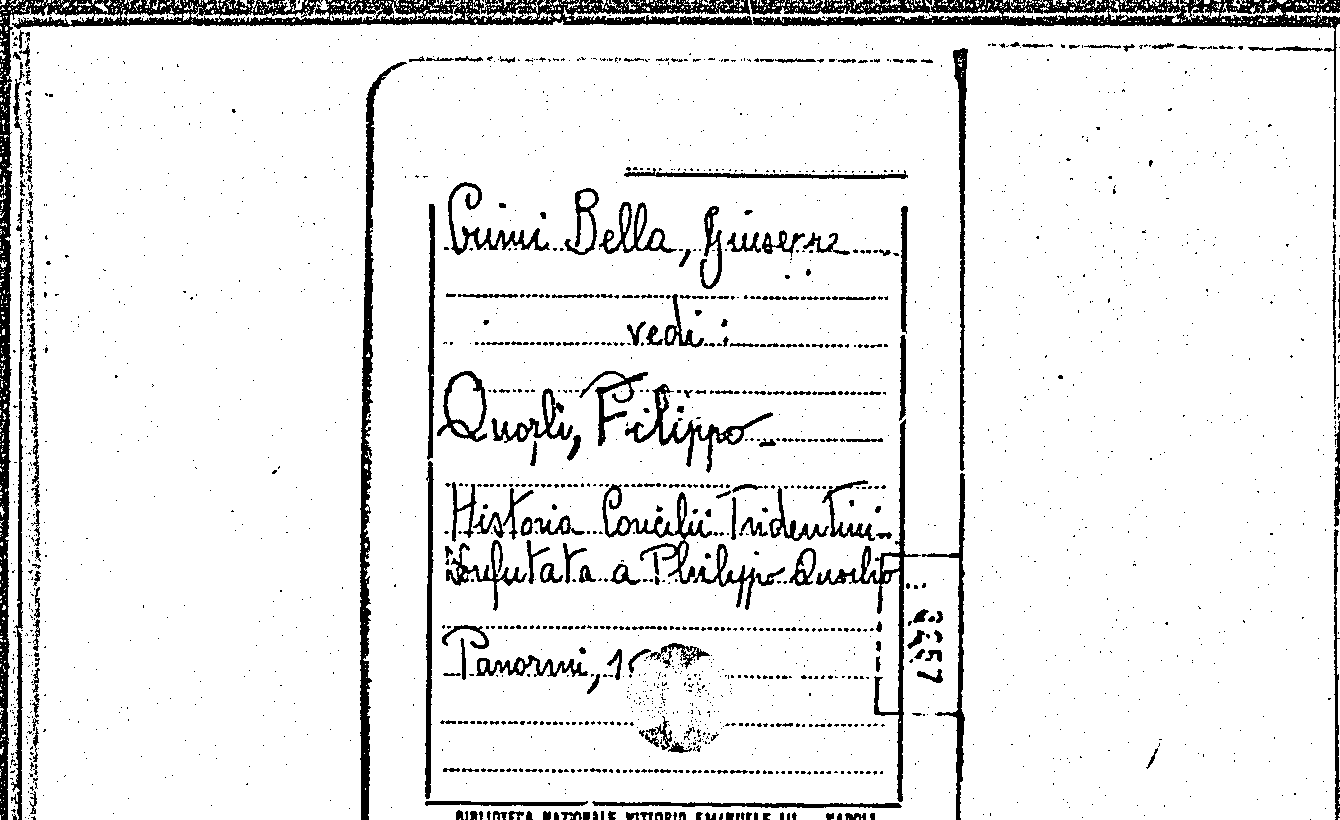 Crimi Bella, Giuseppe
vedi:
Quorli, Filippo
Historia Concilii Tridentini
Refutata a Philippo Quorlio
Panormi, 1
3257
BIBLIOTECA NAZIONALE VITTORIO EMANUELE III - NAPOLI